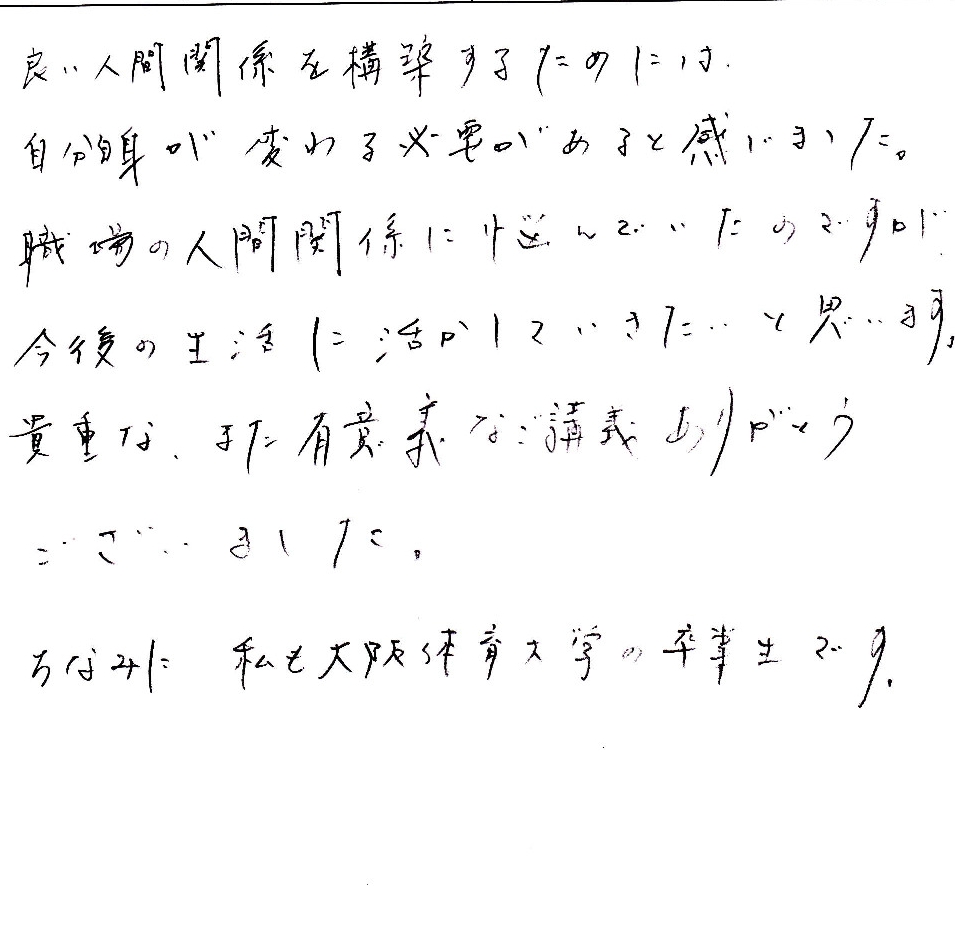 良い人間関係を構築するためには、
自分自身が変わる必要があると感じました。
職場の人間関係に悩んでいたのですが、
今後の生活に活かしていきたいと思います。
貴重な、また有意義なご講義ありがとう
ございました。
ちなみに 私も大阪体育大学の卒業生です。